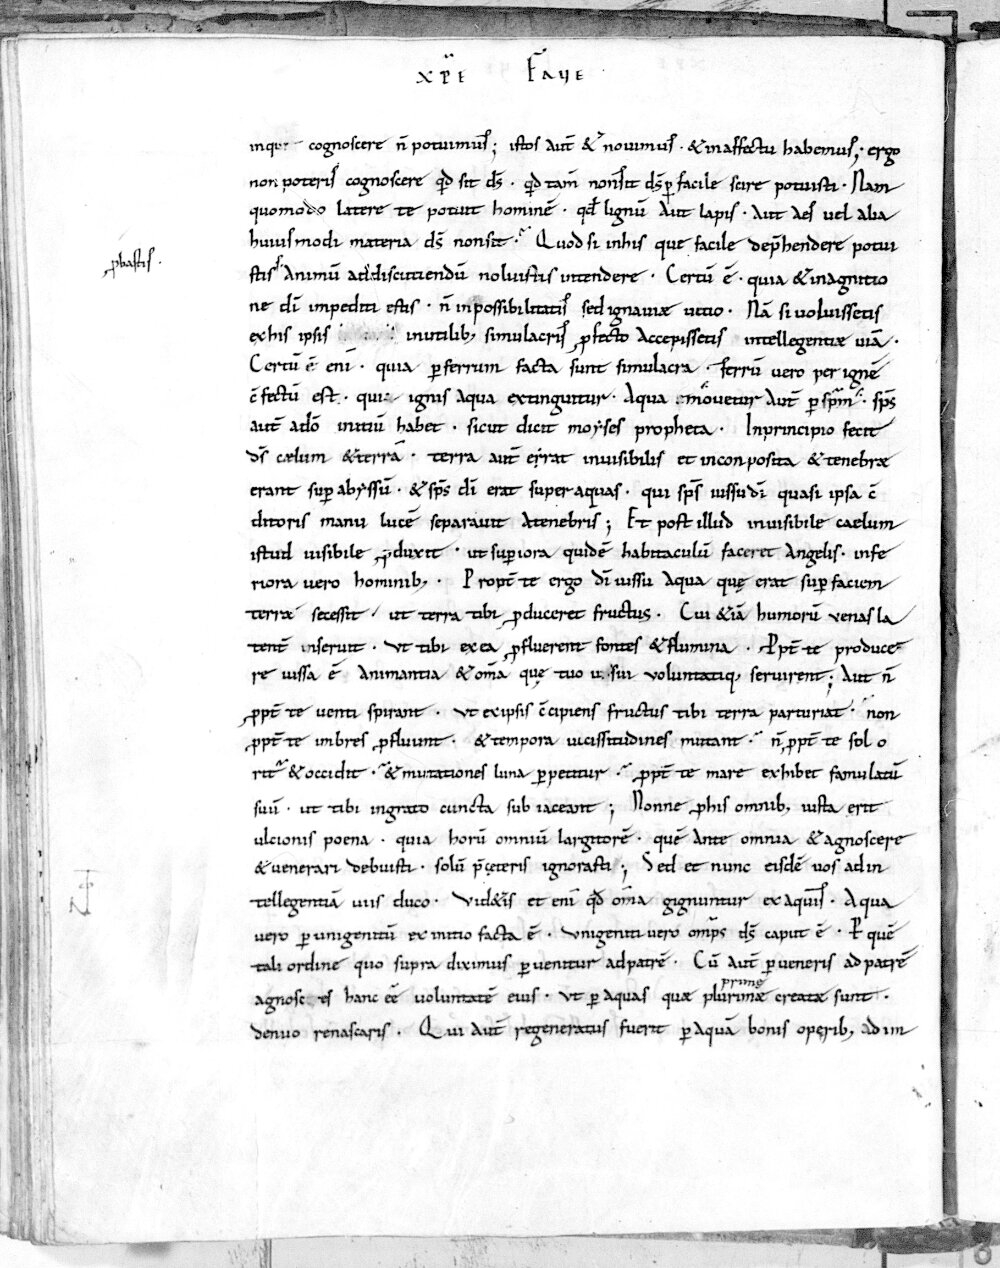 xp̄e Faue
inqui cognoscere n̄ potuimus; istos aut̄ & nouimus · & inaffectu habemus; ergo
non poteris cognoscere qd̄ sit ds̄ · qd̄ tam̄ nonsit ds̄ ꝑ facile scire potuisti · Nam
quomodo latere te potuit hominē · qđ lignū aut lapis · aut aes uel alia
huiusmodi materia ds̄ nonsit · Quod si inhis que facile dep̄hendere potui
ꝓbastis ·
stis animū addiscutiendū noluistis intendere · Certū ē · quia & inagnitio
ne dī impediti estis · n̄ inpossibilitatis sed ignauiae uitio · Nā si uoluissetis
exhis ipsis inutilib; simulacris ꝓfecto accepissetis intellegentiae uiā ·
Certū ē enī · quia ꝑ ferrum facta sunt simulacra · ferrū uero per ignē
c̄fectū est · qui ignis aqua extinguitur · Aqua mouetur aut̄ ꝑ sp̄m · sp̄s
aut̄ adō initiū habet · sicut dicit moyses propheta · Inprincipio fecit
ds̄ caelum & terrā · terra aut̄ errat inuisibilis et inconposita & tenebrae
erant suꝑ abyssū · & sp̄s dī erat super aquas · qui sp̄s iussu dī quasi ipsa c̄
ditoris manu lucē separauit atenebris; Et post illud inuisibile caelum
istud uisibile ꝓduxit · ut suꝑiora quidē habitaculū faceret angelis · infe
riora uero hominib; · Propt̄ te ergo dī iussu aqua quę erat suꝑ faciem
terrae secessit · ut terra tibi ꝓduceret fructus · Cui & iā humorū uenas la
tent̄ inseruit · ut tibi exea ꝓfluerent fontes & flumina · Ꝓpt̄ te produce
re iussa ē animantia & om̄a quę tuo usui uoluntatiq; seruirent; Aut n̄
ꝓpt̄ te uenti spirant · ut exipsis c̄cipiens fructus tibi terra parturiat · non
ꝓpt̄ te imbres ꝓfluunt · & tempora uicissitudines mutant · n̄ ꝓpt̄ te sol o
rit & occidit · & mutationes luna ꝑpetitur · ꝓpt̄ te mare exhibet famulatū
suū · ut tibi ingrato cuncta sub iaceant; Nonne ꝓhis omnib; iusta erit
ulcionis poena · quia horū omniū largitorē · quē ante omnia & agnoscere
& uenerari debuisti · solū p̄ceteris ignorasti; Sed et nunc eisdē uos adin
tellegentiā uiis duco · Vid&is et enī qđ om̄a gignuntur ex aquis · Aqua
uero ꝑ unigenitū ex initio facta ē · unigeniti uero omp̄s ds̄ caput ē · Ꝑ quē
tali ordine quo supra diximus ꝑuenitur adpatrē · Cū aut̄ ꝑueneris ad patrē
prime
agnosces hanc eē uoluntatē eius · ut ꝑ aquas quae plurimae creatae sunt ·
denuo renascaris · Qui aut̄ regeneratus fuerit ꝑ aquā bonis operib; ad im